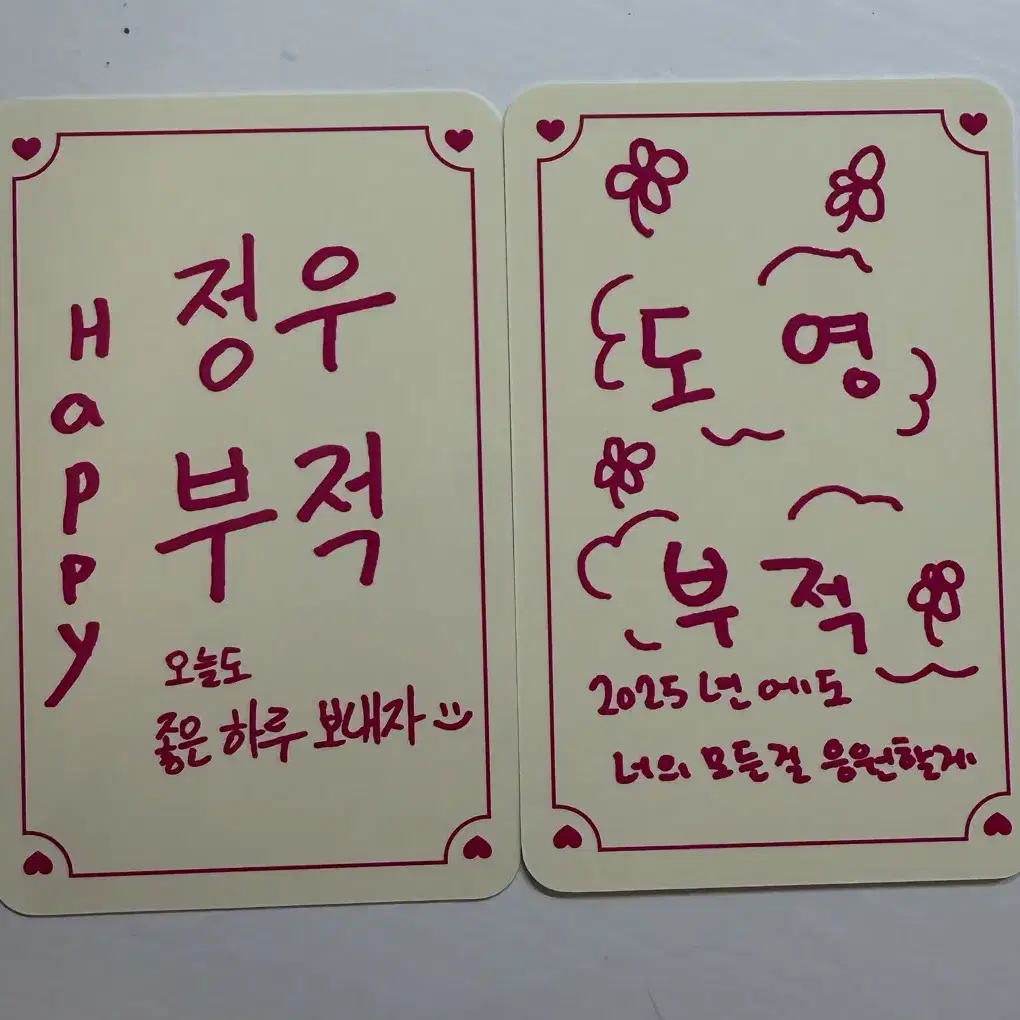 Happy
정우
부적
오늘도
좋은 하루 보내자
도영
부적
2025년에도
너의 모든걸 응원할게